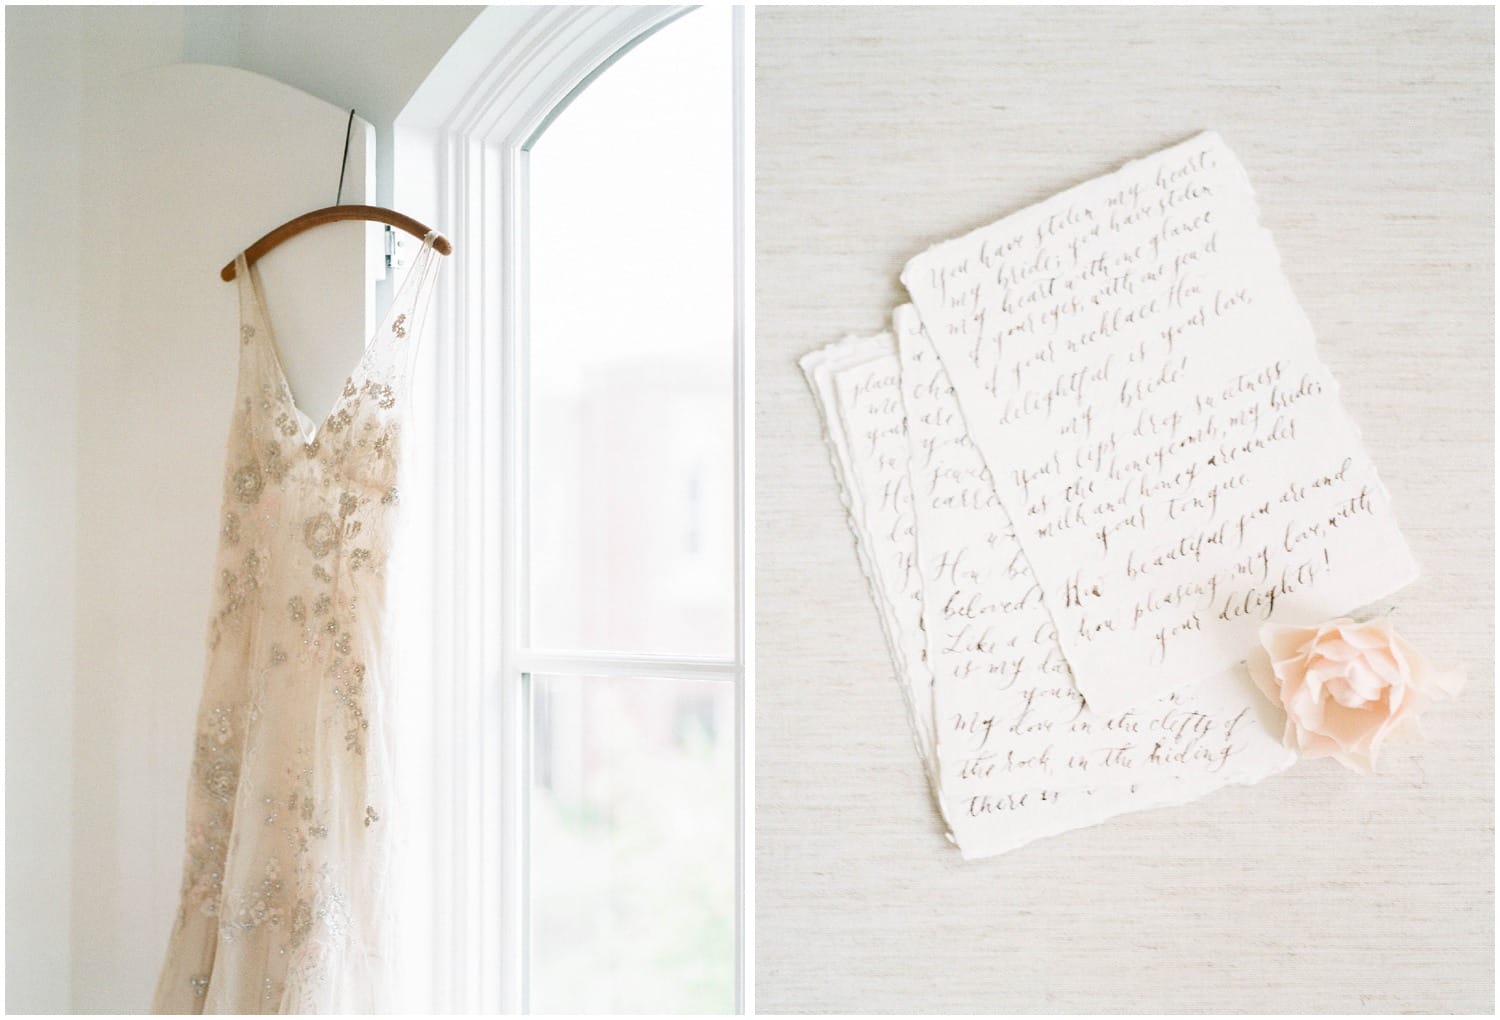 You have stolen my heart,
my bride; you have stolen
my heart with one glance
of your eyes, with one jewel
of your necklace. How
delightful is your love,
my bride!
Your lips drop sweetness
as the honeycomb, my bride;
milk and honey are under
your tongue.
How beautiful you are and
how pleasing, my love, with
your delights!
a
cha
are
you
jewel
earri
How be
beloved!
Like a
is my da
young
My dove in the clefts of
the rock, in the hiding
there is
place
me
your
Ho
da